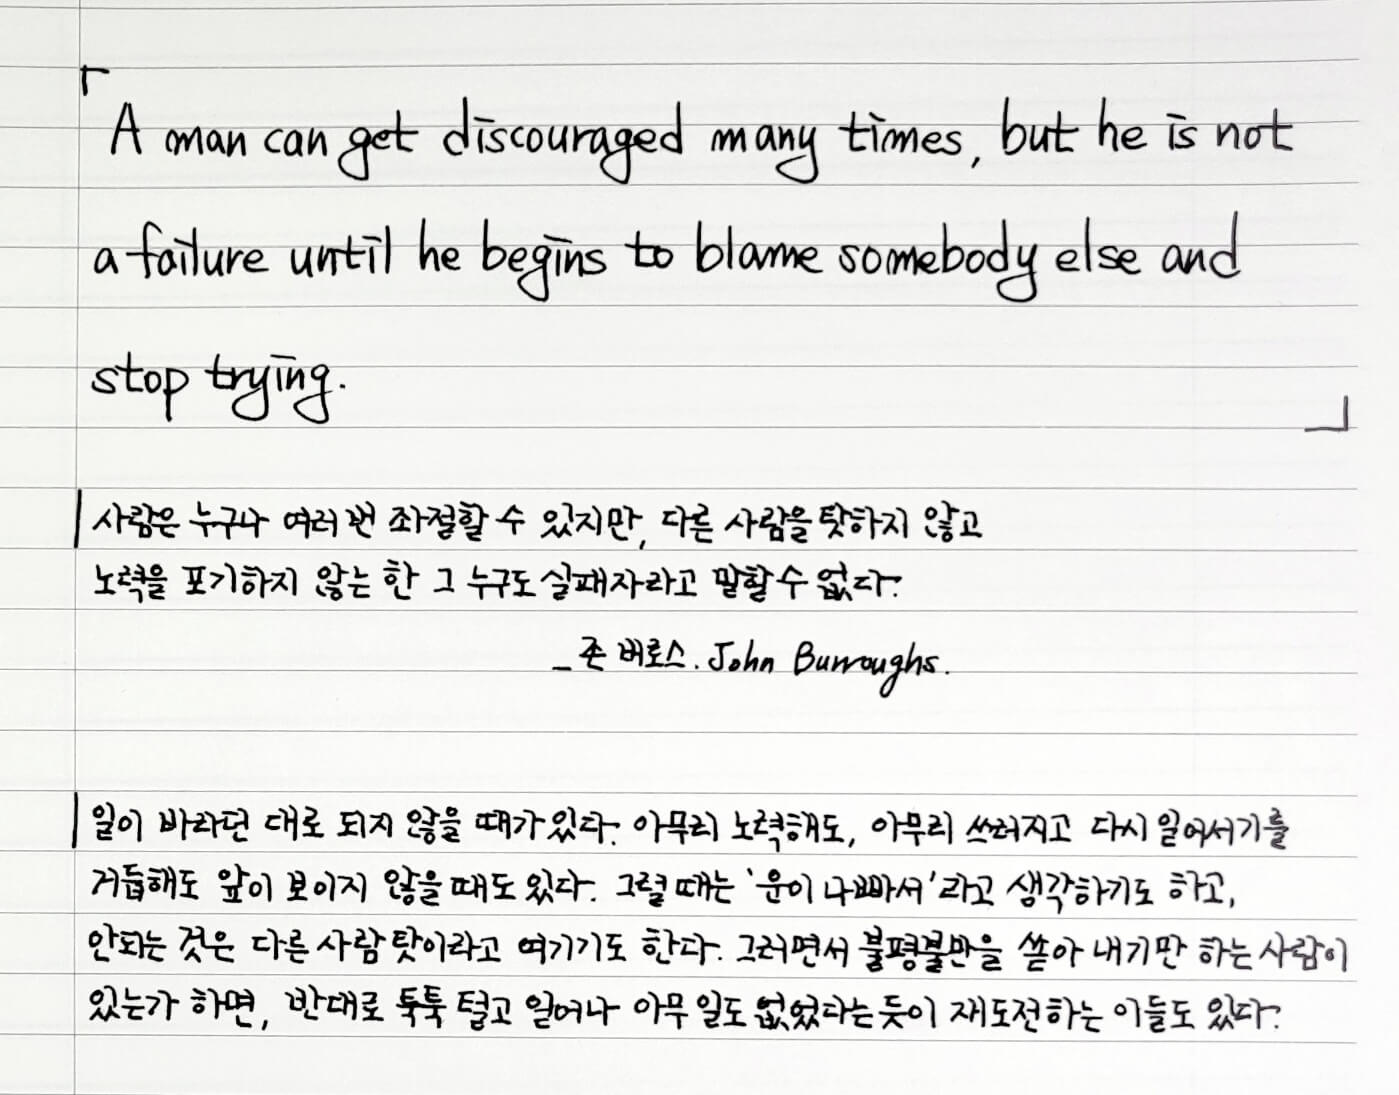 「A man can get discouraged many times, but he is not
a failure until he begins to blame somebody else and
stop trying.」
사람은 누구나 여러 번 좌절할 수 있지만, 다른 사람을 탓하지 않고
노력을 포기하지 않는 한 그 누구도 실패자라고 말할 수 없다.
_존 버로스. John Burroughs.
일이 바라던 대로 되지 않을 때가 있다. 아무리 노력해도, 아무리 쓰러지고 다시 일어서기를
거듭해도 앞이 보이지 않을 때도 있다. 그럴 때는 '운이 나빠서'라고 생각하기도 하고,
안되는 것은 다른 사람 탓이라고 여기기도 한다. 그러면서 불평불만을 쏟아 내기만 하는 사람이
있는가 하면, 반대로 툭툭 털고 일어나 아무 일도 없었다는 듯이 재도전하는 이들도 있다.